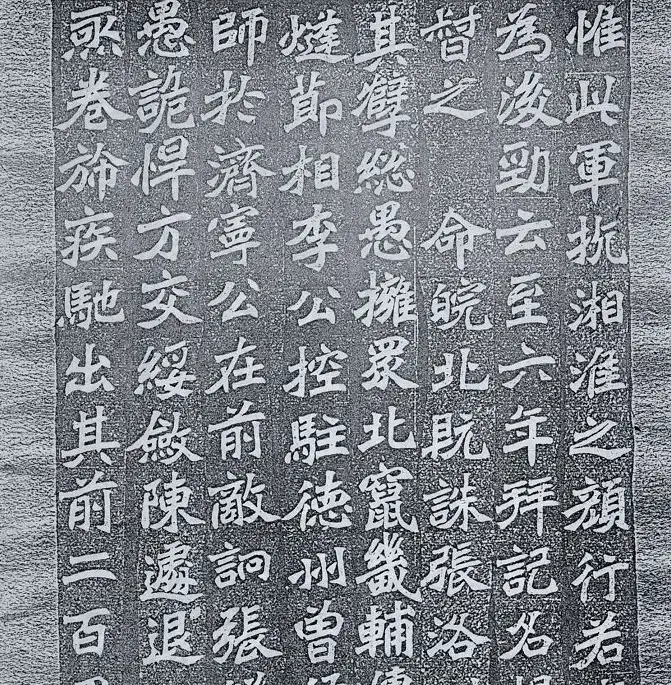 惟此軍抚湘淮之頏行若
為浚勁云至六年拜記名
督之 命皖北既誅張洛
其孽総愚擁眾北竄畿輔
燧節相李公控駐德州曾
師扵濟寧公在前敵詗張
愚詭悍方交綏斂陳遽退
乘卷斾疾馳出其前二百